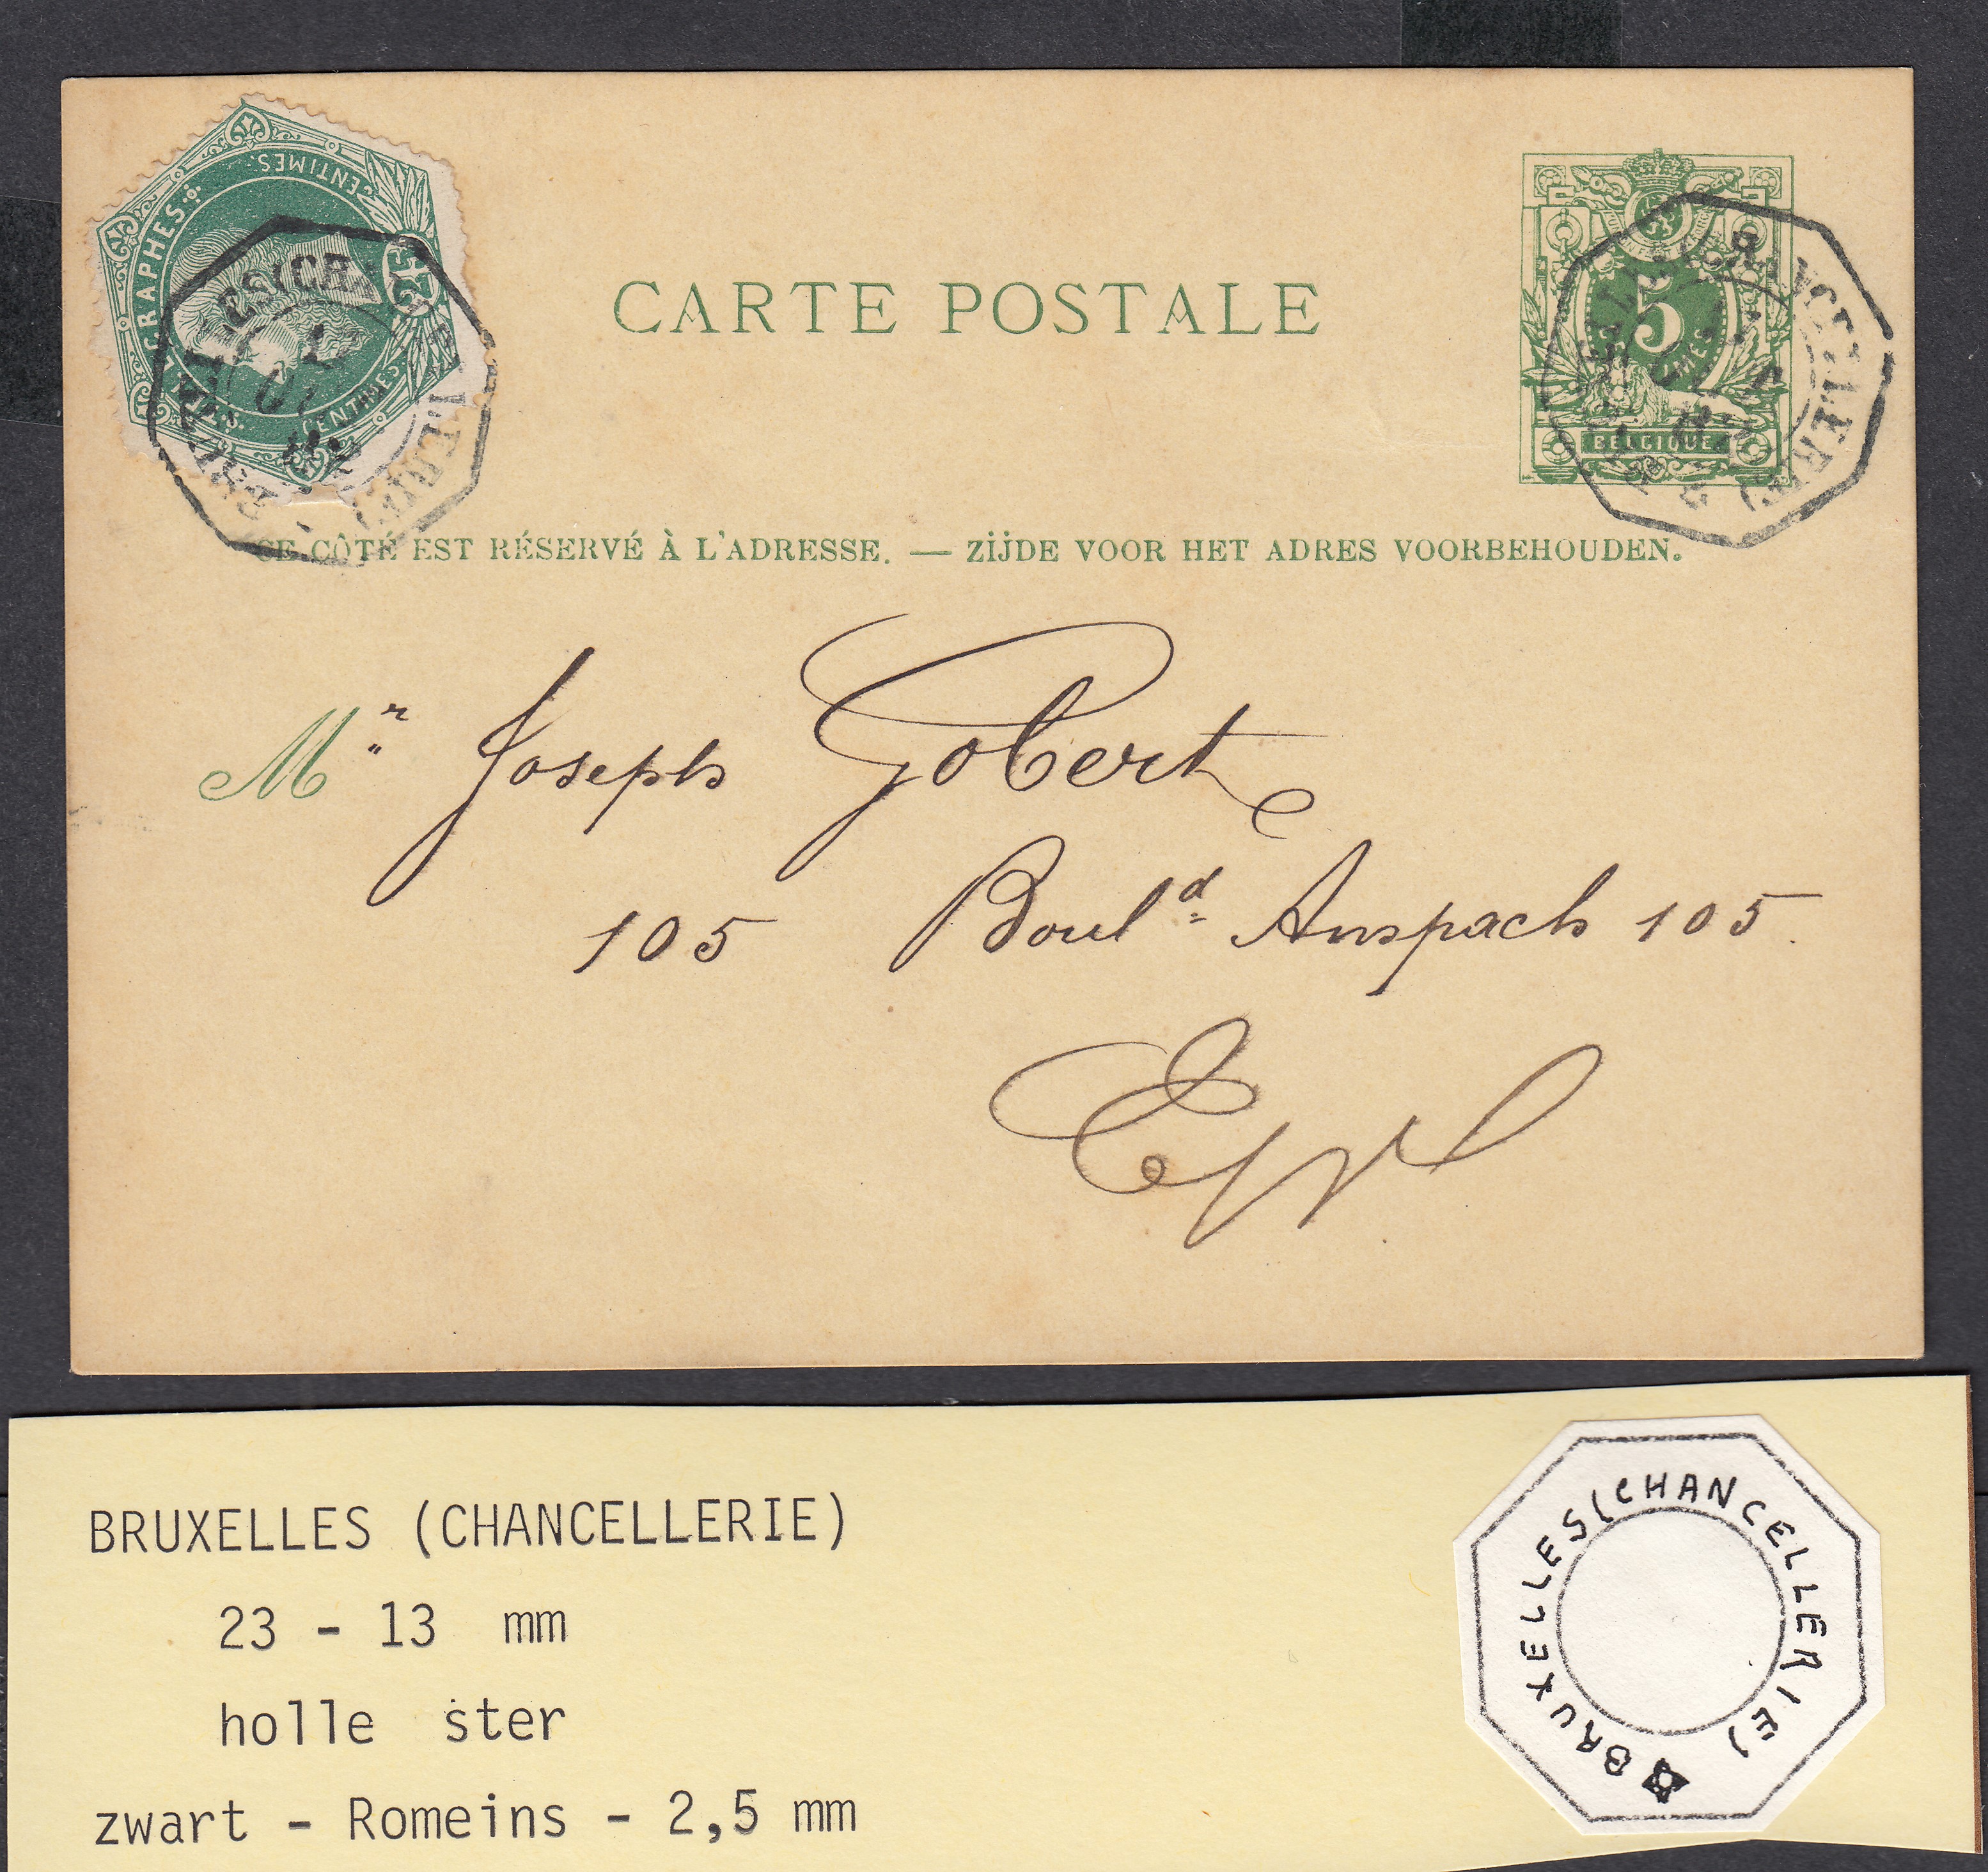 GRAPHES
CENTIMES.
CENTIMES
25
CARTE POSTALE
5
BELGIQUE
CE CÔTÉ EST RÉSERVÉ À L'ADRESSE. — ZIJDE VOOR HET ADRES VOORBEHOUDEN.
Mr Joseph Gobert
105 Bould Anspach 105.
BRUXELLES (CHANCELLERIE)
23 - 13 mm
holle ster
zwart - Romeins - 2,5 mm
BRUXELLES (CHANCELLERIE)